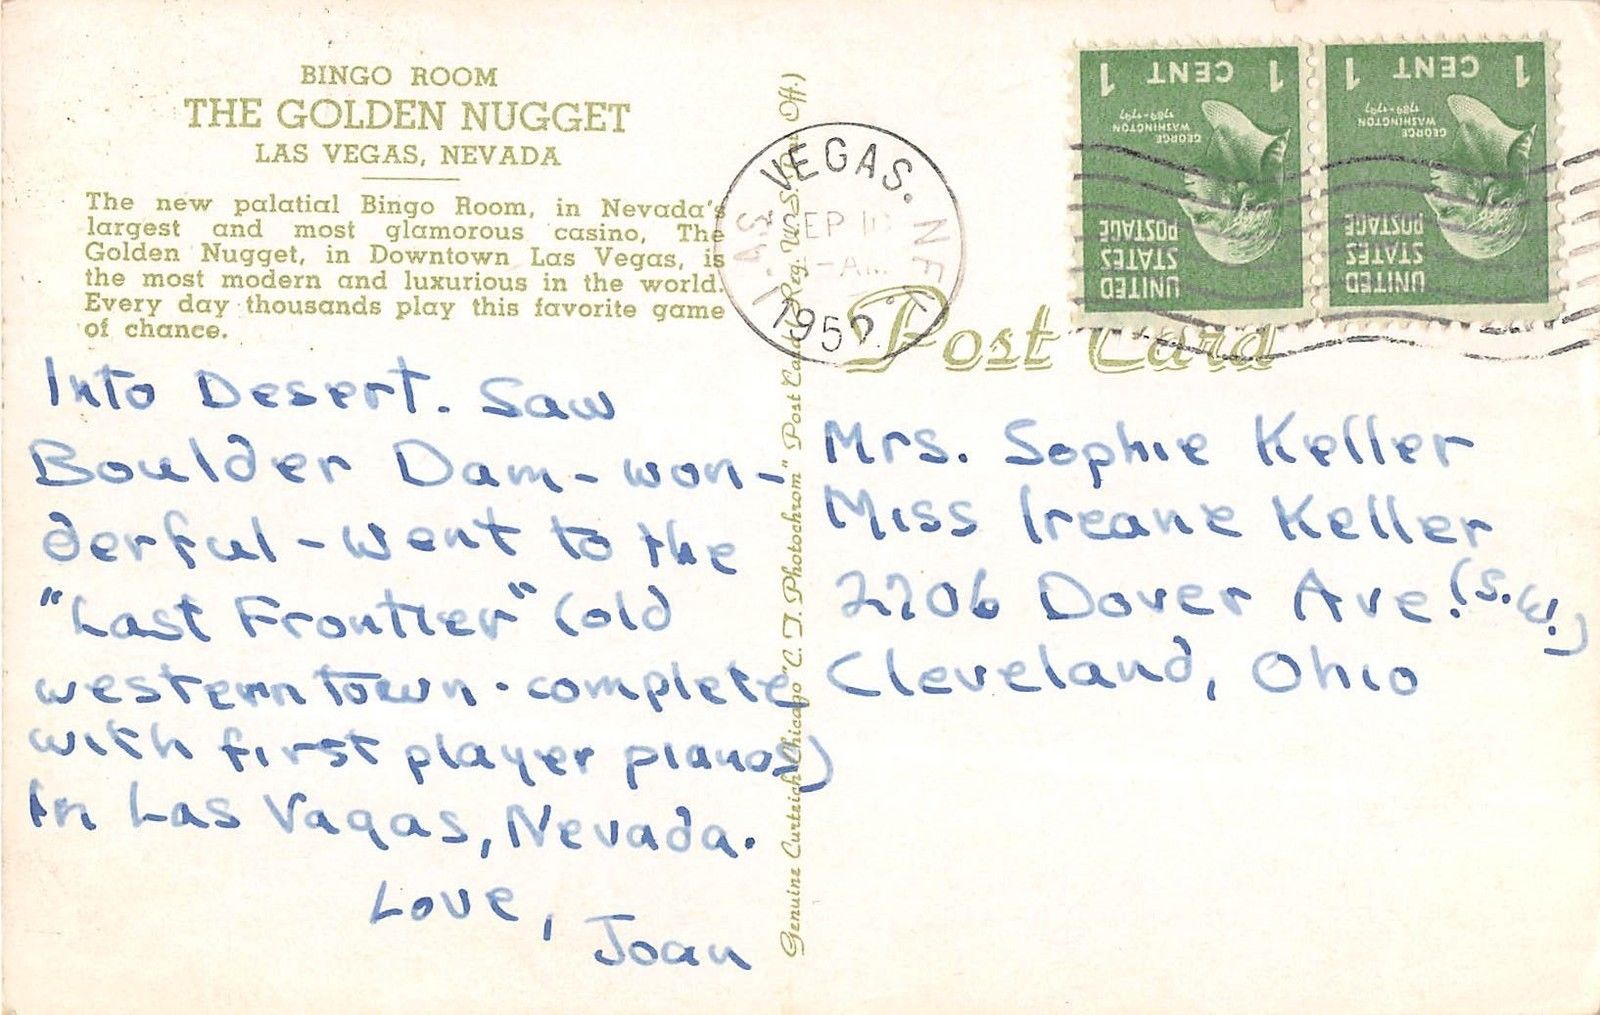 BINGO ROOM
THE GOLDEN NUGGET
LAS VEGAS, NEVADA
The new palatial Bingo Room, in Nevada's
largest and most glamorous casino, The
Golden Nugget, in Downtown Las Vegas, is
the most modern and luxurious in the world.
Every day thousands play this favorite game
of chance.
Into Desert. Saw
Boulder Dam - won-
derful - went to the
"Last Frontier" (old
western town - complete
with first player pianos)
in Las Vagas, Nevada.
Love,
Joan
Genuine Curteich-Chicago "C. T. Photochrom" Post Card (Reg. U.S. Pat. Off.)
LAS VEGAS. NEV.
SEP
AM
1950
1 CENT 1
GEORGE
WASHINGTON
1789-1797
UNITED
STATES
POSTAGE
1 CENT 1
GEORGE
WASHINGTON
1789-1797
UNITED
STATES
POSTAGE
Post Card
Mrs. Sophie Keller
Miss Ireane Keller
2206 Dover Ave. (S.W.)
Cleveland, Ohio